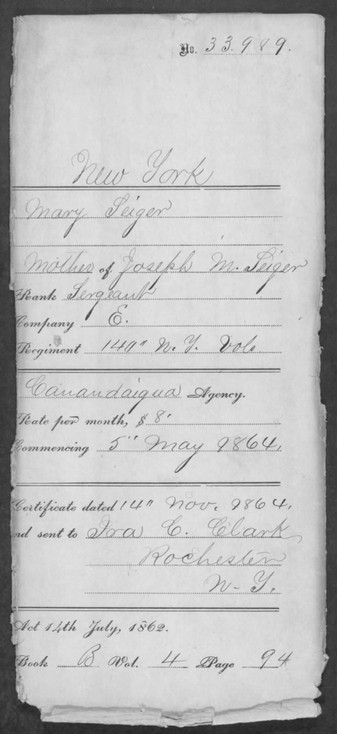 No. 33.989.
New York
Mary Seiger
Mother of Joseph M. Seiger
Rank Sergeant
Company E.
Regiment 140" N. Y. Vols
Canandaigua Agency.
Rate per month, $ 8.
Commencing 5" May 1864.
Certificate dated 14" Nov. 1864.
and sent to Ira C. Clark
Rochester
N. Y.
Act 14th July, 1862.
Book B Vol. 4 Page 94